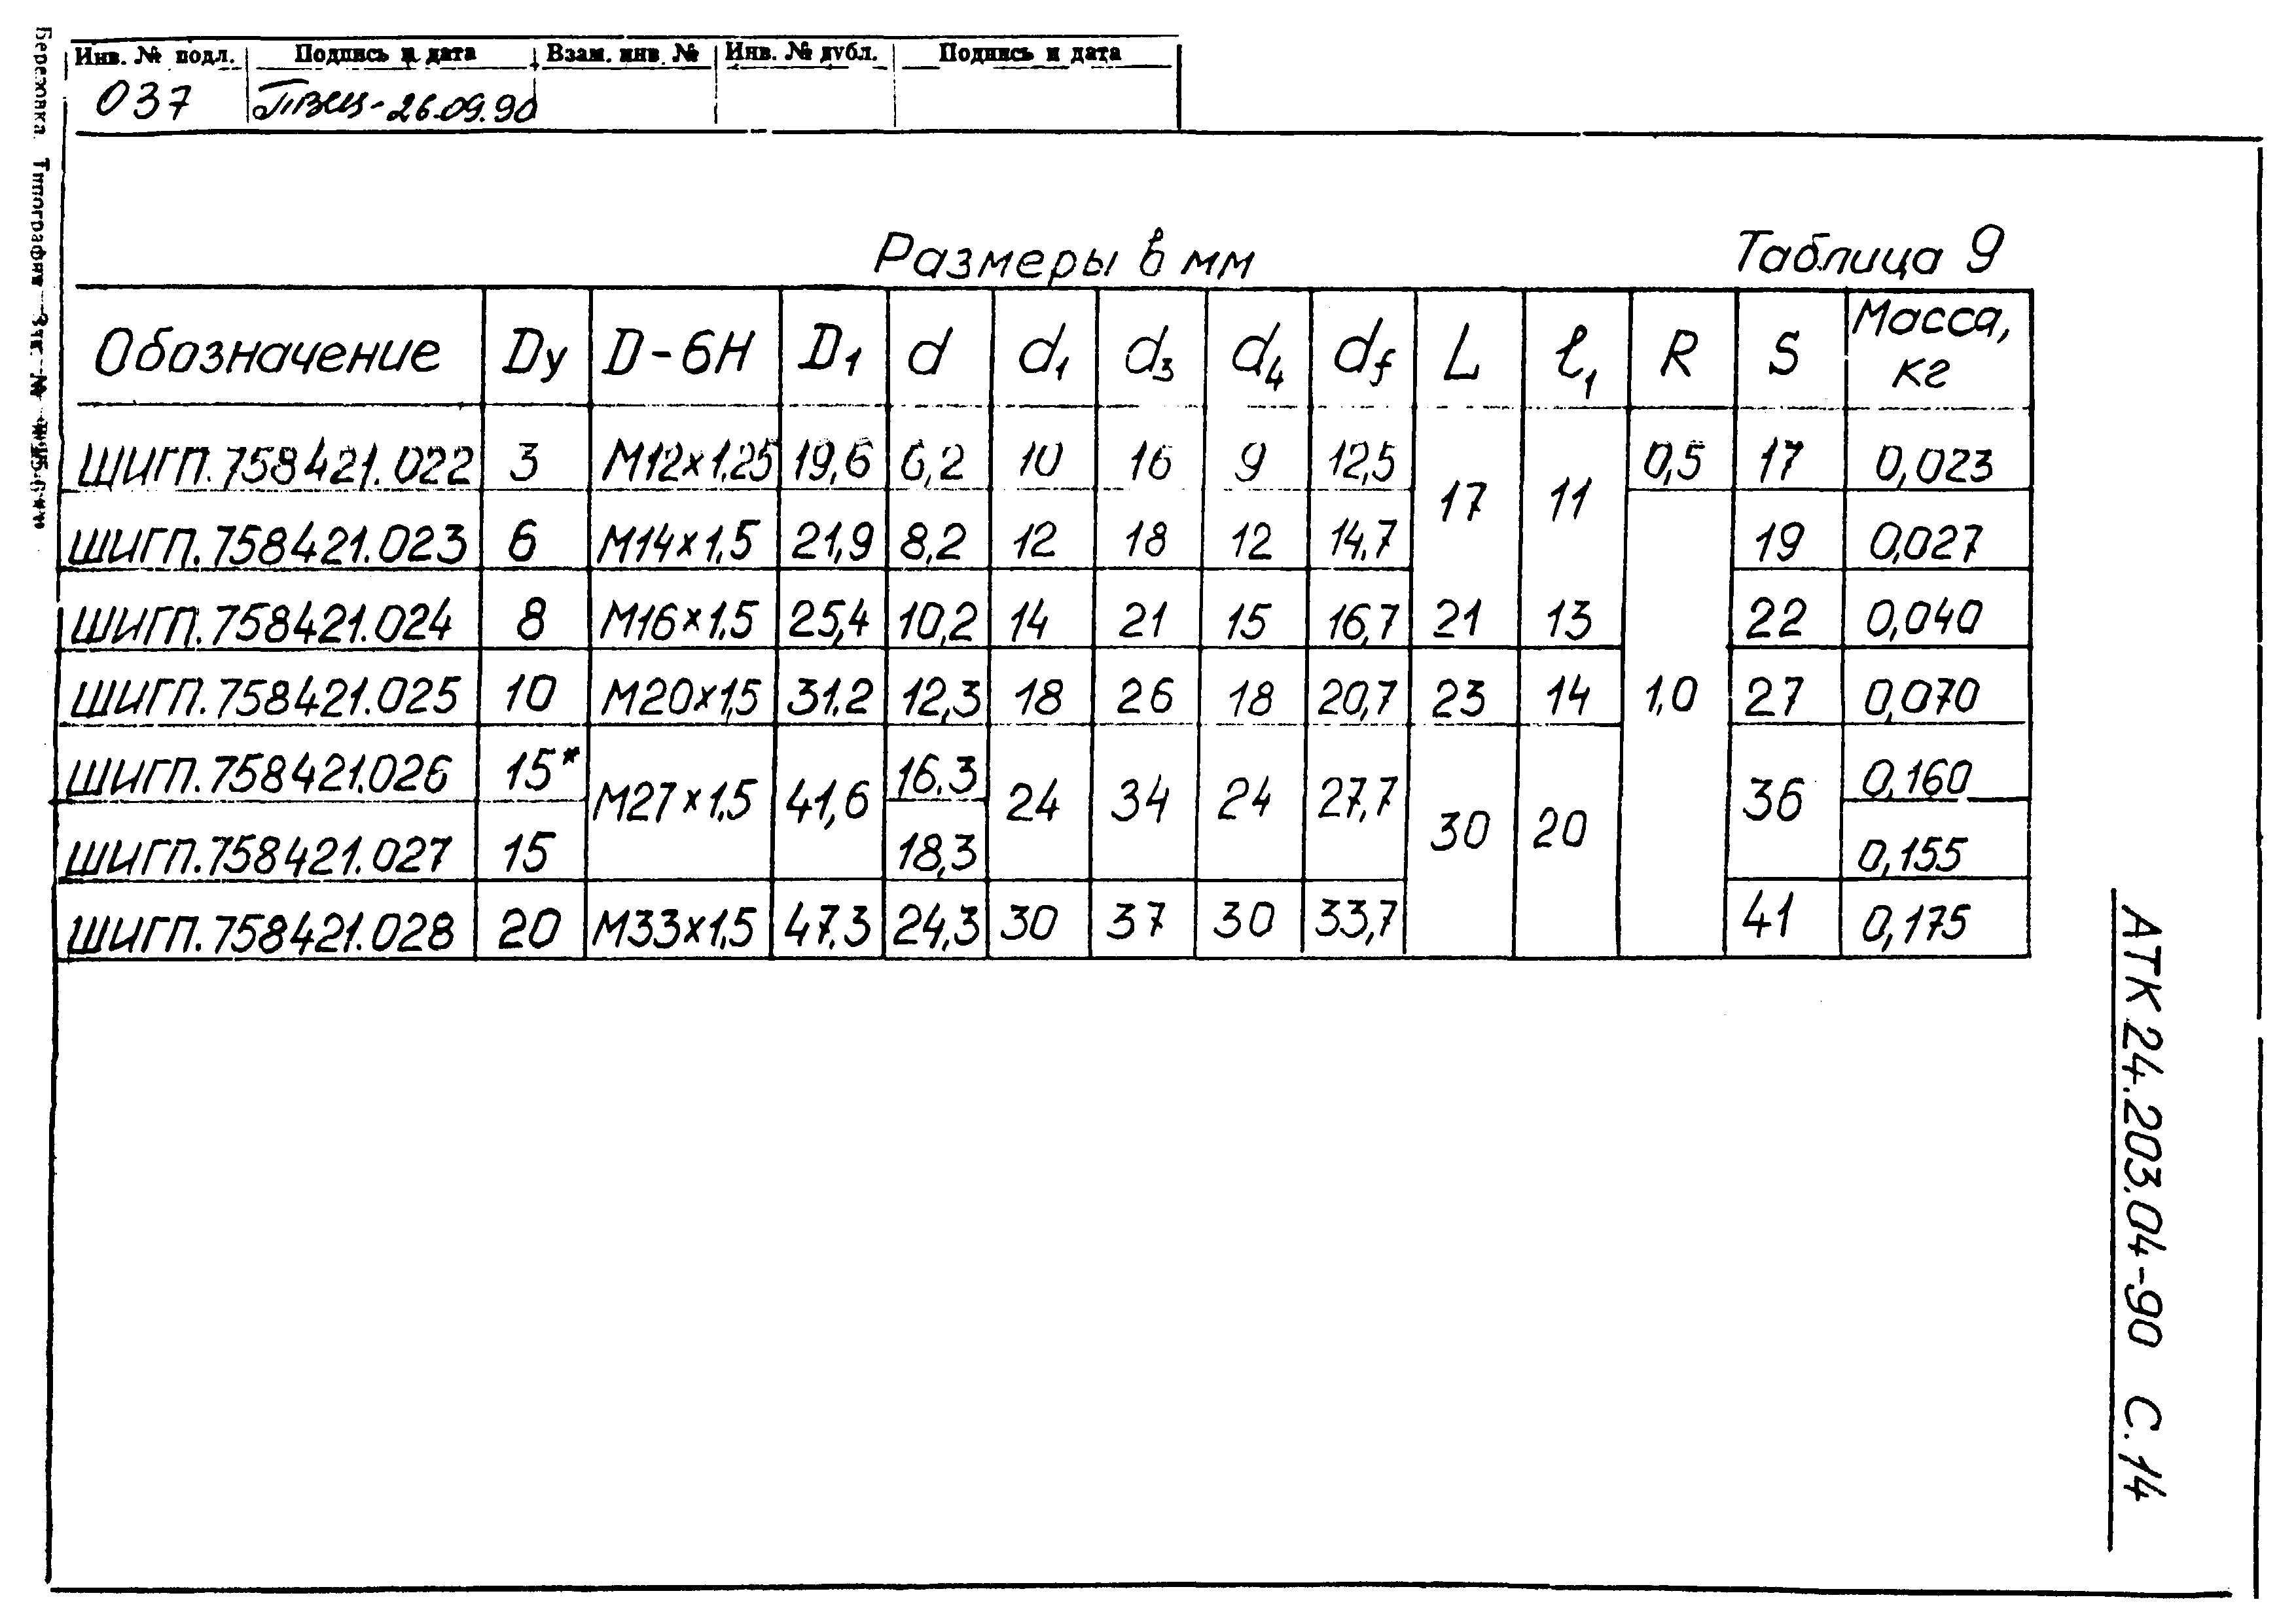 Инв. № подл. Подпись и дата Взам. инв. № Инв. № дубл. Подпись и дата
037 26.09.90
Березовка. Типография
Размеры в мм Таблица 9
Обозначение Dу D-6H D1 d d1 d3 d4 df L l1 R S Масса, кг
ШИГП.758421.022 3 М12×1,25 19,6 6,2 10 16 9 12,5 17 11 0,5 17 0,023
ШИГП.758421.023 6 М14×1,5 21,9 8,2 12 18 12 14,7 19 0,027
ШИГП.758421.024 8 М16×1,5 25,4 10,2 14 21 15 16,7 21 13 22 0,040
ШИГП.758421.025 10 М20×1,5 31,2 12,3 18 26 18 20,7 23 14 1,0 27 0,070
ШИГП.758421.026 15* М27×1,5 41,6 16,3 24 34 24 27,7 30 20 36 0,160
ШИГП.758421.027 15 18,3 0,155
ШИГП.758421.028 20 М33×1,5 47,3 24,3 30 37 30 33,7 41 0,175
АТК 24.203.04-90 С.14